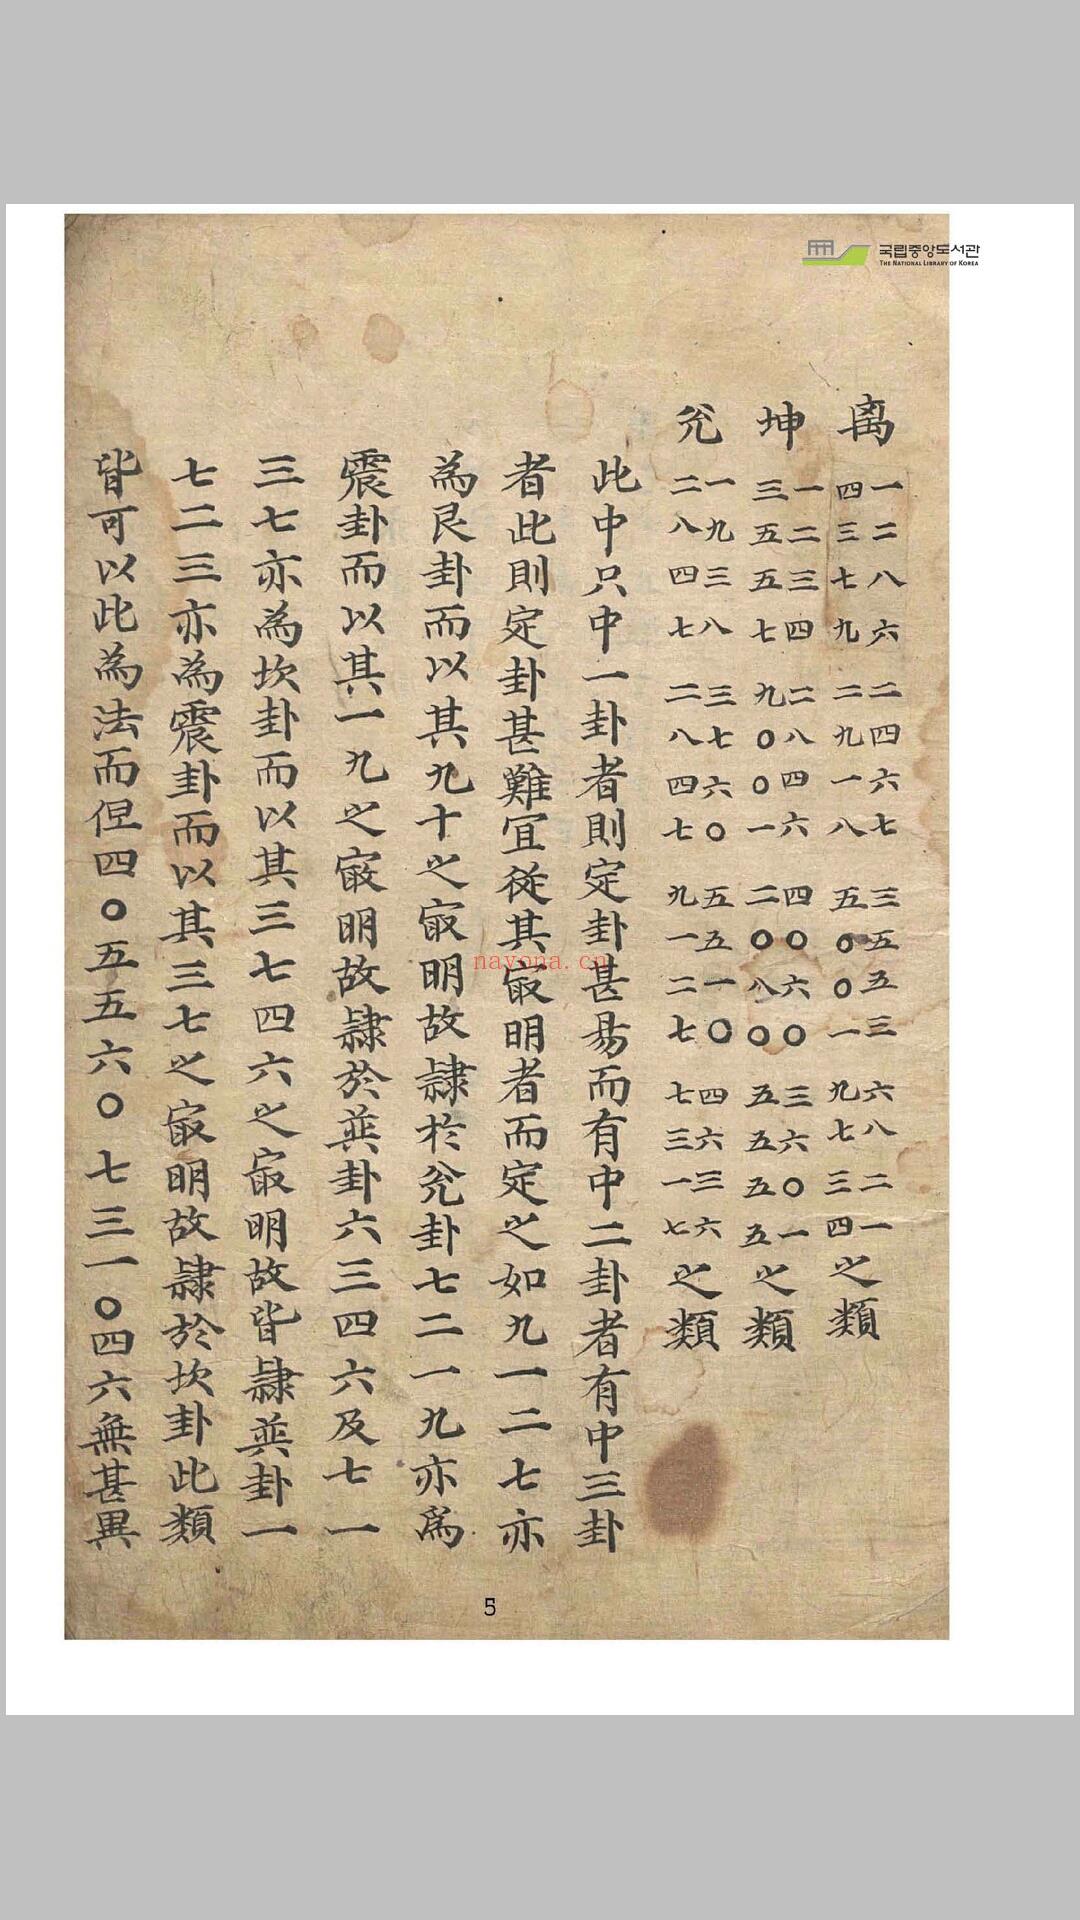 离 一二八六 四三七九 二四六七 二九一八 三五五三 五〇〇一 六八二一 九七三四 之類
坤 一二三四 三五五七 二八四六 九〇〇一 四〇六〇 二〇八〇 三六〇一 五五五五 之類
兊 一九三八 二八四七 三七六〇 二八四七 五五一〇 九一二七 四六三六 七三一七 之類
此中只中一卦者則定卦甚易而有中二卦者有中三卦
者此則定卦甚難冝從其㝡明者而定之如九一二七亦
為艮卦而以其九十之㝡明故隷於兊卦七二一九亦爲
震卦而以其一九之㝡明故隷於巽卦六三四六及七一
三七亦為坎卦而以其三七四六之㝡明故皆隷巽卦一
七二三亦為震卦而以其三七之㝡明故隷於坎卦此類
皆可以此為法而但四〇五五六〇七三一〇四六無甚異
국립중앙도서관
THE NATIONAL LIBRARY OF KOREA
nayona.cn
5